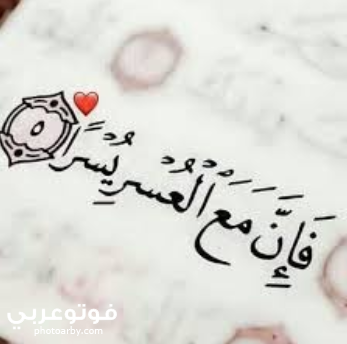 فَإِنَّ مَعَ الْعُسْرِ يُسْرًا ٥
فوتوعربي
photoarby.com